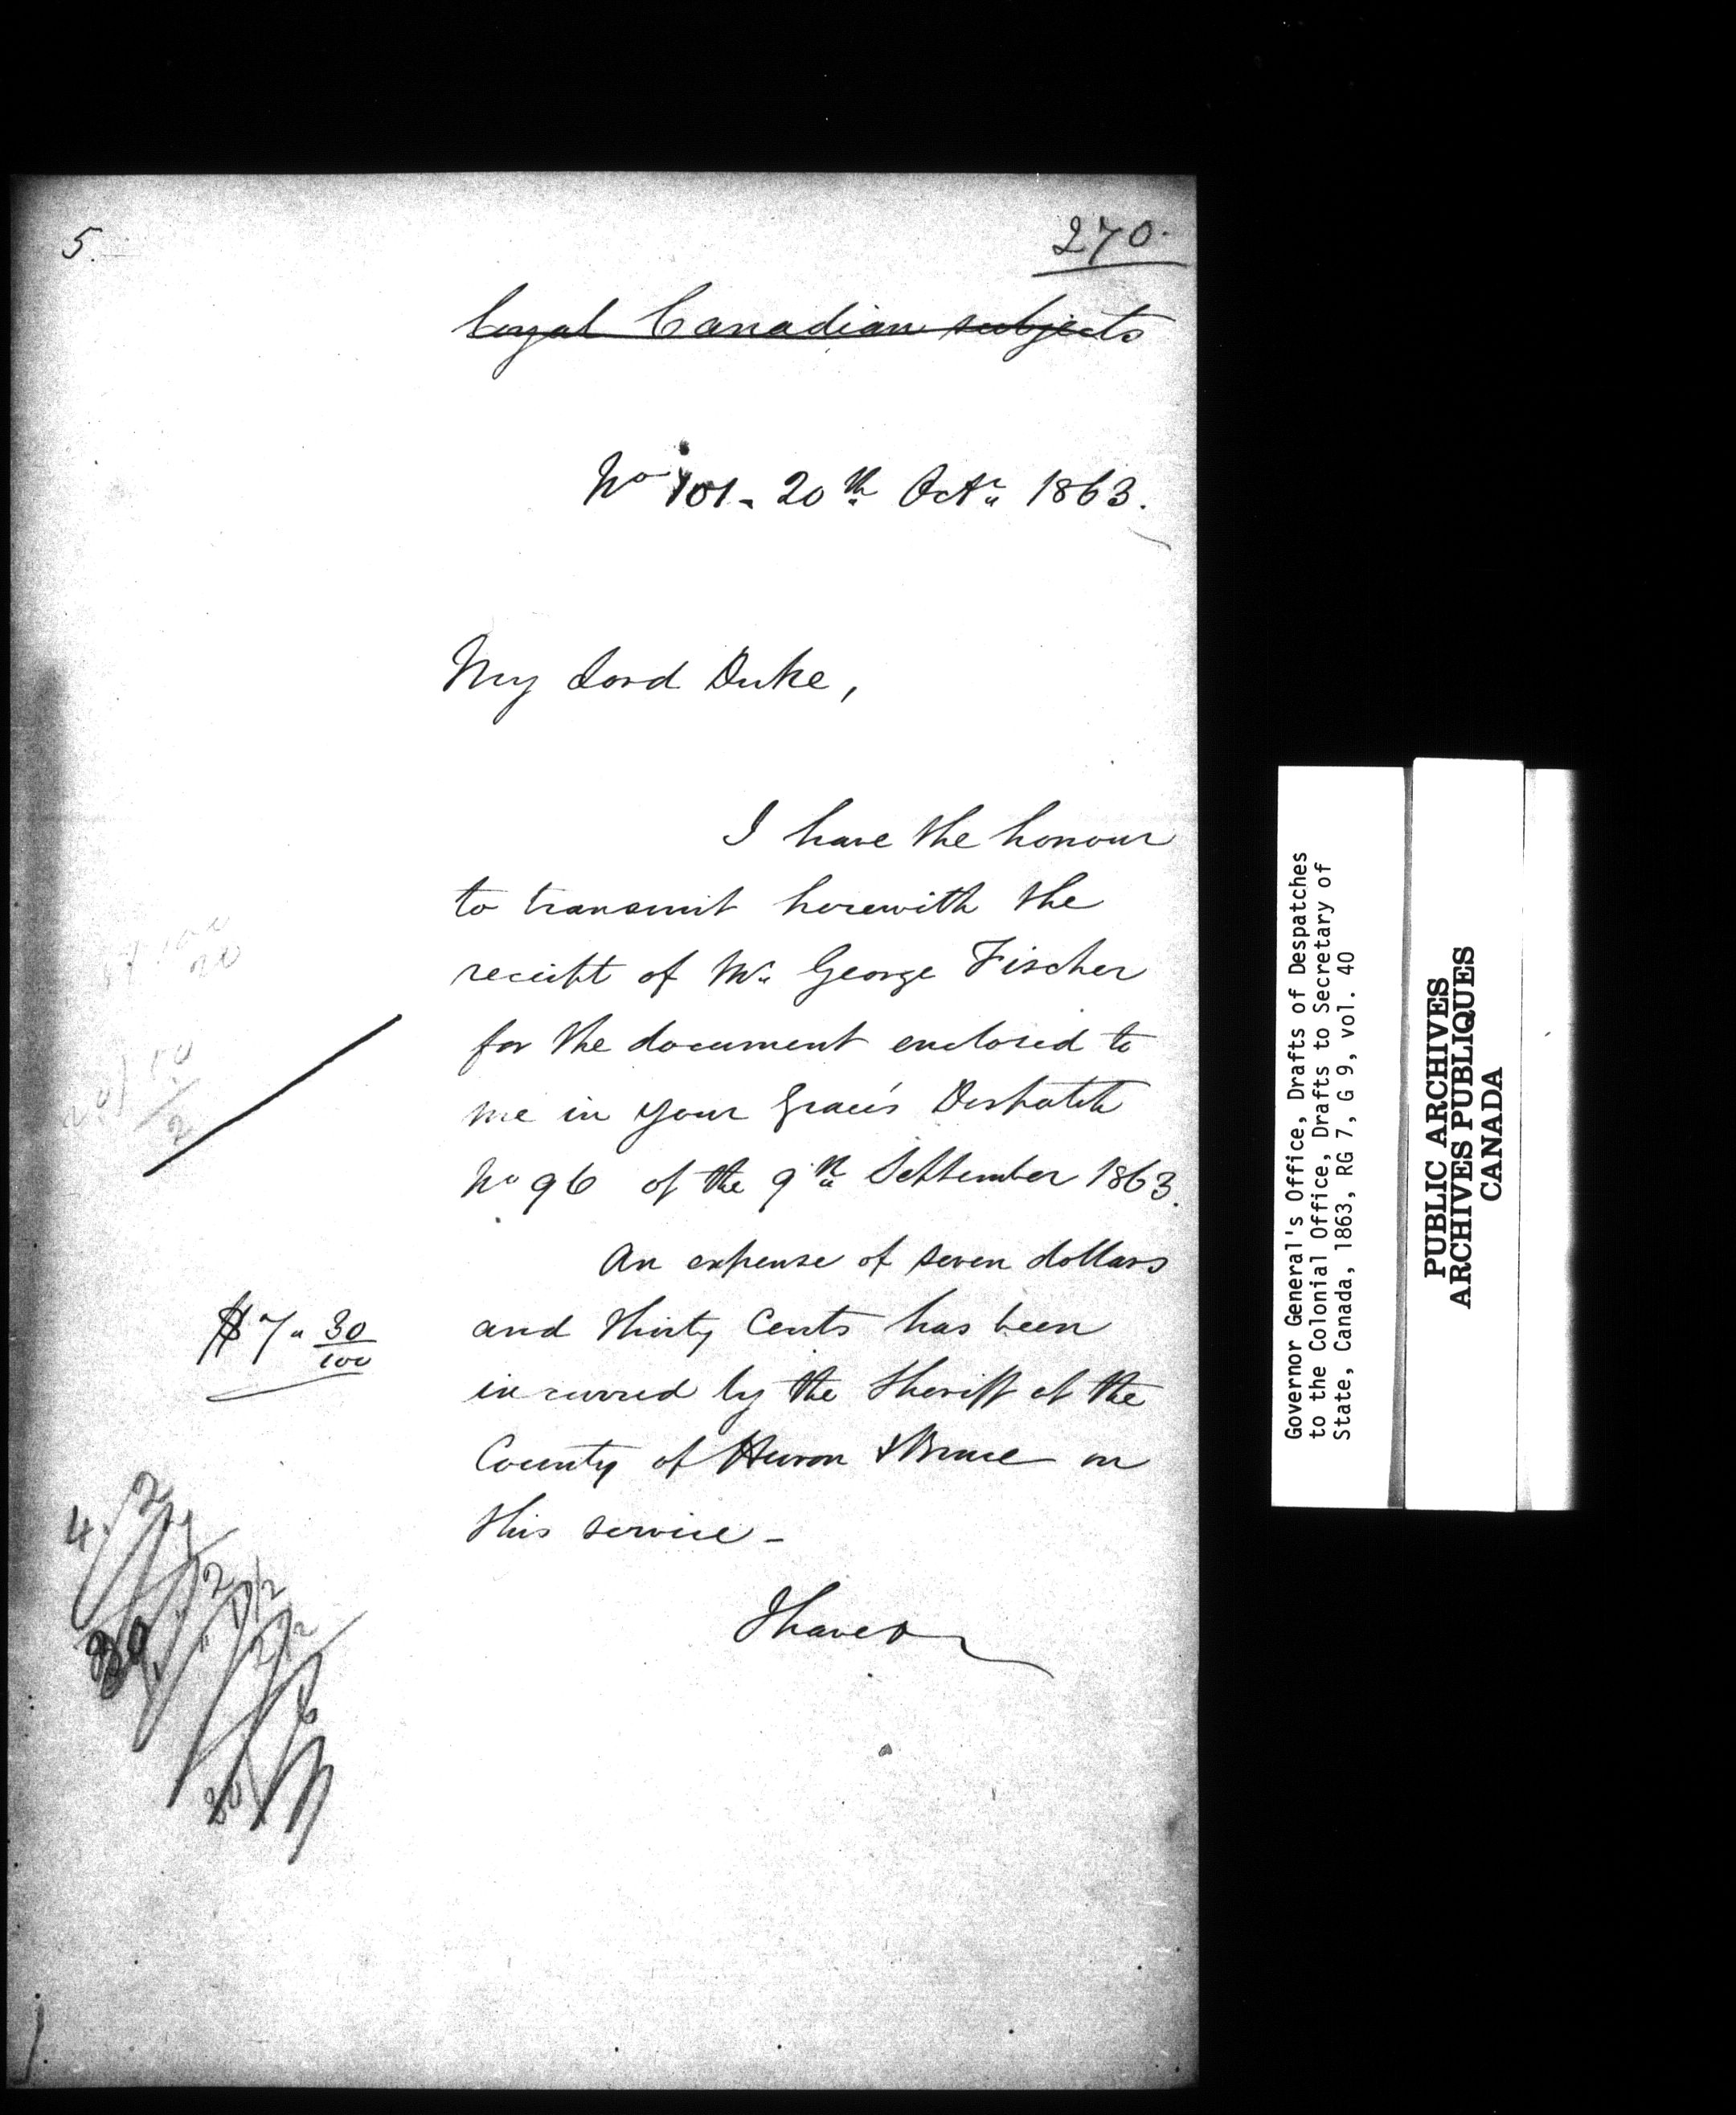 5.
270.
loyal Canadian subjects
No 101 - 20th Octr 1863.
My Lord Duke,
I have the honour
to transmit herewith the
receipt of Mr George Fischer
for the document enclosed to
me in your Grace's Despatch
No 96 of the 9th September 1863.
An expense of seven dollars
and thirty Cents has been
$7 " 30/100
incurred by the Sheriff of the
County of Huron & Bruce on
this service -
I have &
Governor General's Office, Drafts of Despatches
to the Colonial Office, Drafts to Secretary of
State, Canada, 1863, RG 7, G 9, vol. 40
PUBLIC ARCHIVES
ARCHIVES PUBLIQUES
CANADA